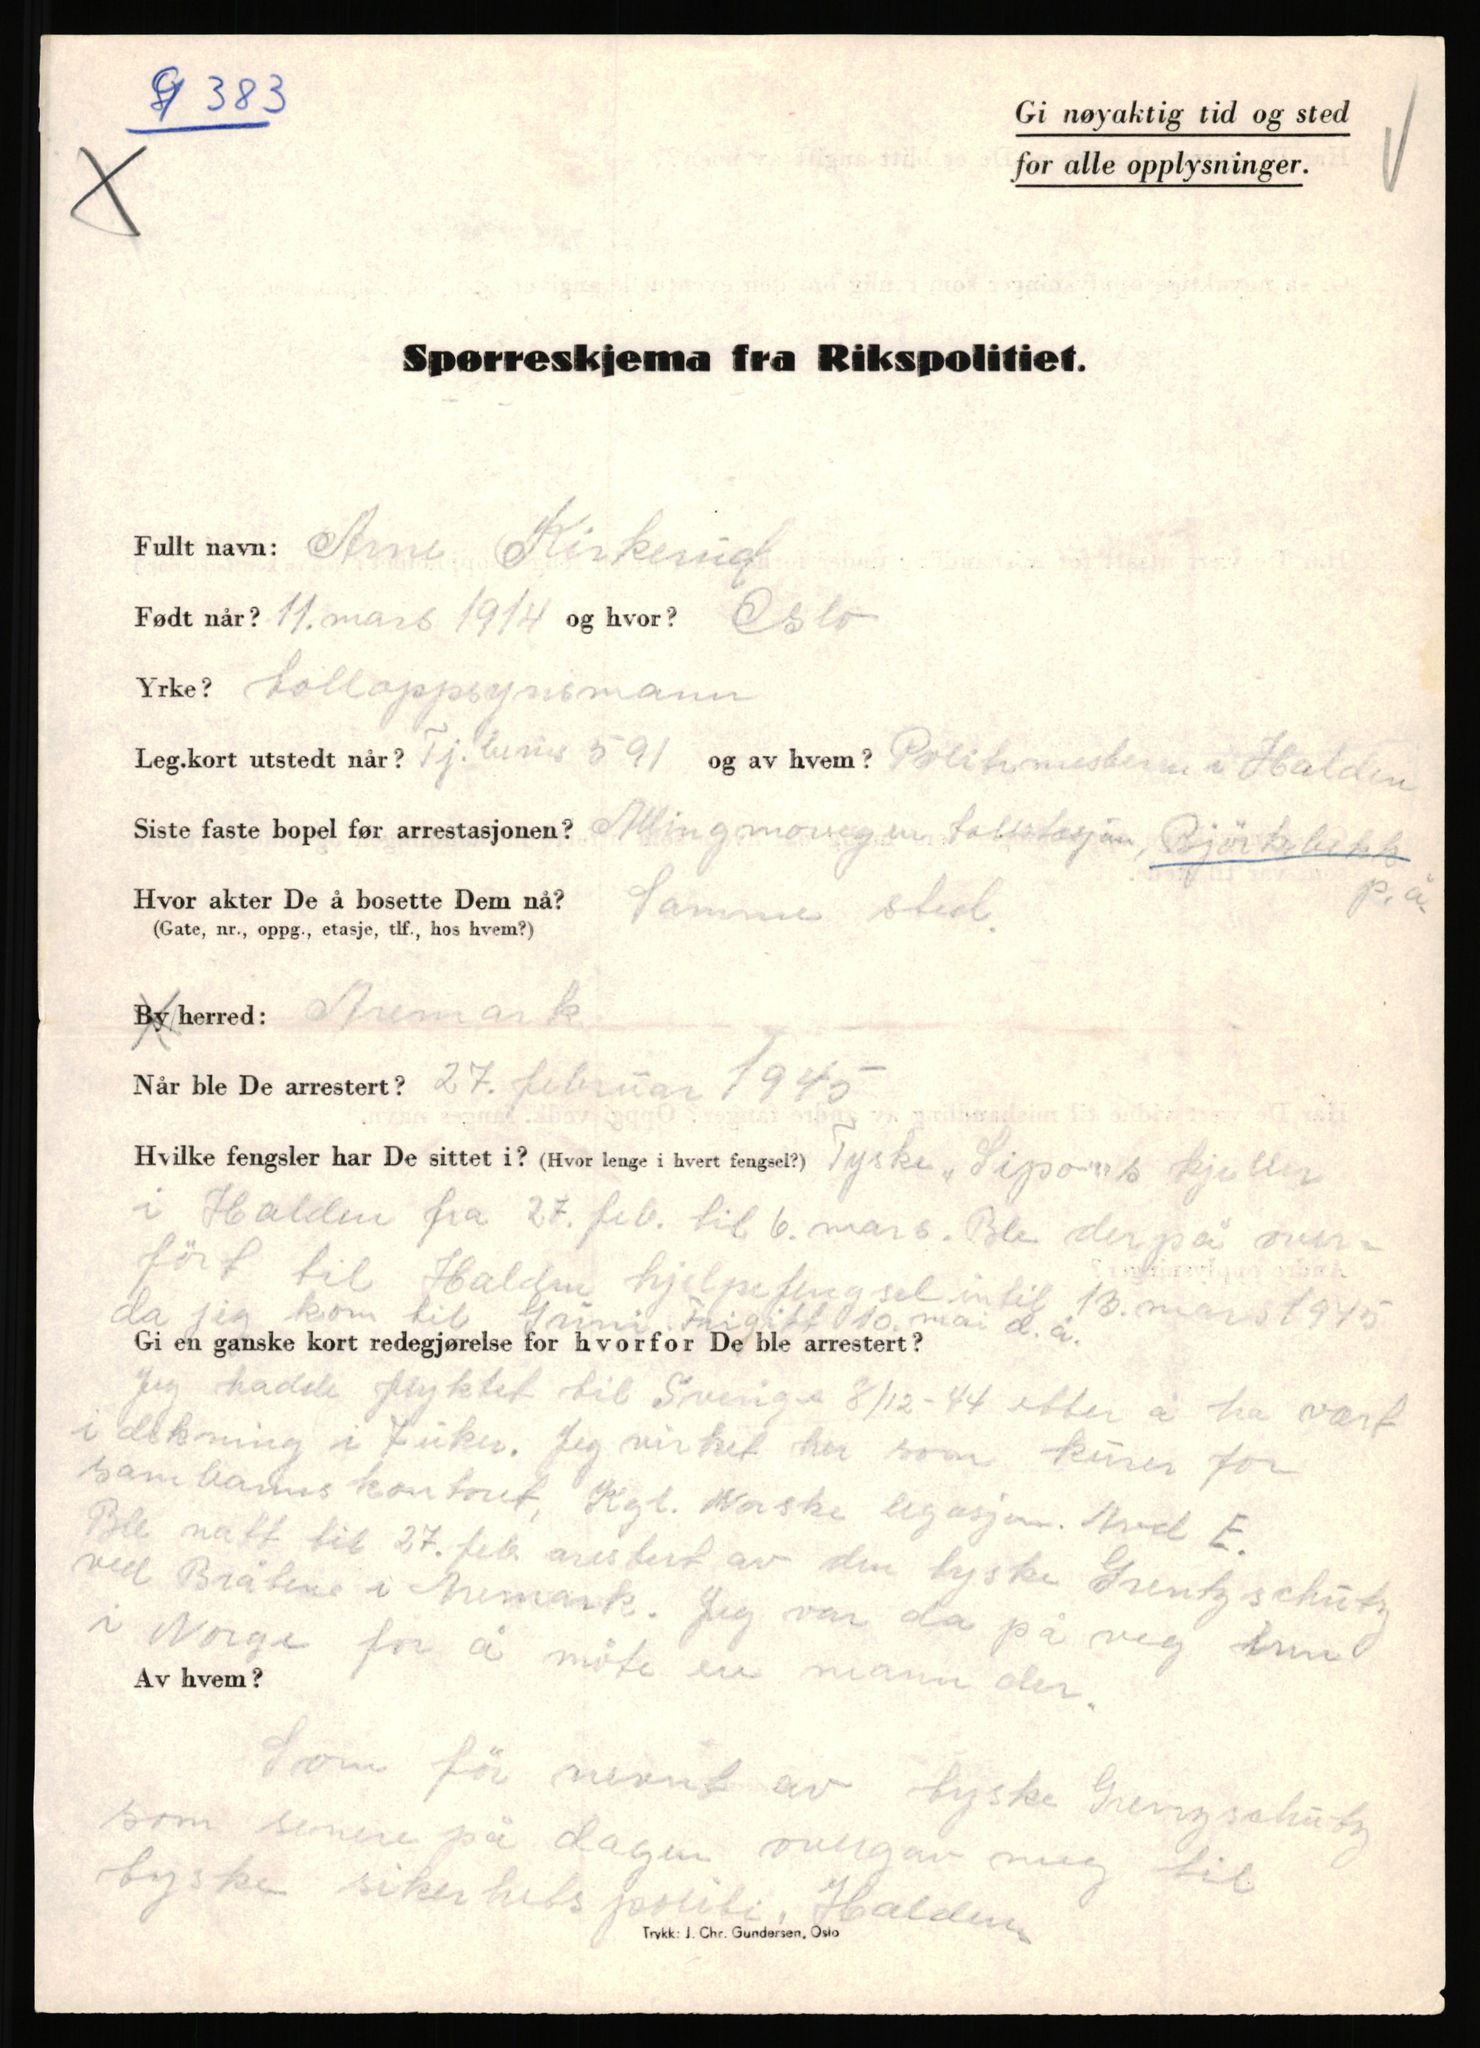 383
Gi nøyaktig tid og sted
for alle opplysninger.
Spørreskjema fra Rikspolitiet.
Fullt navn: Arne Kirkerud
Født når? 11. mars 1914 og hvor? Oslo
Yrke? Tolloppsynsmann
Leg.kort utstedt når? Tj.bevis 591 og av hvem? Politimesteren i Halden
Siste faste bopel før arrestasjonen? tollstasjon, Björkebekk
p. å.
Hvor akter De å bosette Dem nå? Samme sted.
(Gate, nr., oppg., etasje, tlf., hos hvem?)
By herred: Aremark
Når ble De arrestert? 27. februar 1945
Hvilke fengsler har De sittet i? (Hvor lenge i hvert fengsel?) Tyske „Sipo"s kjeller
i Halden fra 27. feb. til 6. mars. Ble derpå over-
ført til Halden hjelpefengsel intil 13. mars 1945
da jeg kom til Grini. Frigitt 10. mai d.å.
Gi en ganske kort redegjørelse for hvorfor De ble arrestert?
Jeg hadde flyktet til Sverige 8/12-44 etter å ha vært
i dekning i 7 uker. Jeg virket her som kurer for
sambannskontoret, Kgl. Norske legasjon. Avd E.
Ble natt til 27. feb. arestert av den tyske Grentzschutz
ved Bråtene i Aremark. Jeg var da på veg inn
i Norge for å möte en mann der.
Av hvem?
Som för nevnt av tyske Grenzschutz
som senere på dagen overgav meg til
tyske sikerhetspoliti, Halden.
Trykk: J. Chr. Gundersen, Oslo